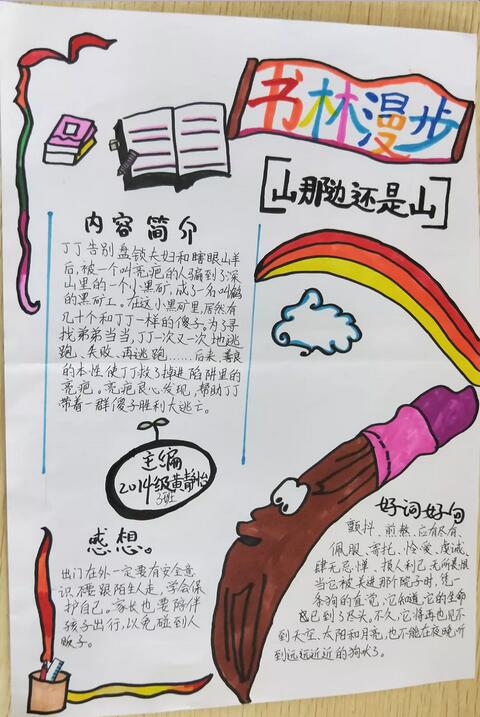 书林漫步
[山那边还是山]
内容简介
丁丁告别盘锁夫妇和瞎眼山羊
后,被一个叫亮疤的人骗到了深
山里的一个小黑矿,成了一名叫鹤
的黑矿工。在这小黑矿里,居然有
几十个和丁丁一样的傻子。为了寻
找弟弟当当,丁丁一次又一次地逃
跑、失败、再逃跑……后来,善良
的本性使丁丁救了掉进陷阱里的
亮疤。亮疤良心发现,帮助丁丁
带着一群傻子胜利大逃亡。
主编
2014级黄静怡
3班
感想。
出门在外一定要有安全意
识,不要跟陌生人走,学会保
护自己。家长也要陪伴
孩子出行,以免碰到人
贩子。
好词好句
颤抖、煎熬、应有尽有、
佩服、寄托、怜爱、虔诚、
肆无忌惮、损人利己、无所畏惧
当它被关进那个院子时,凭一
条狗的直觉,它知道,它的生命
已到了尽头,不久,它将再也见不
到天空、太阳和月亮,也不能在夜晚听
到远远近近的狗吠了。